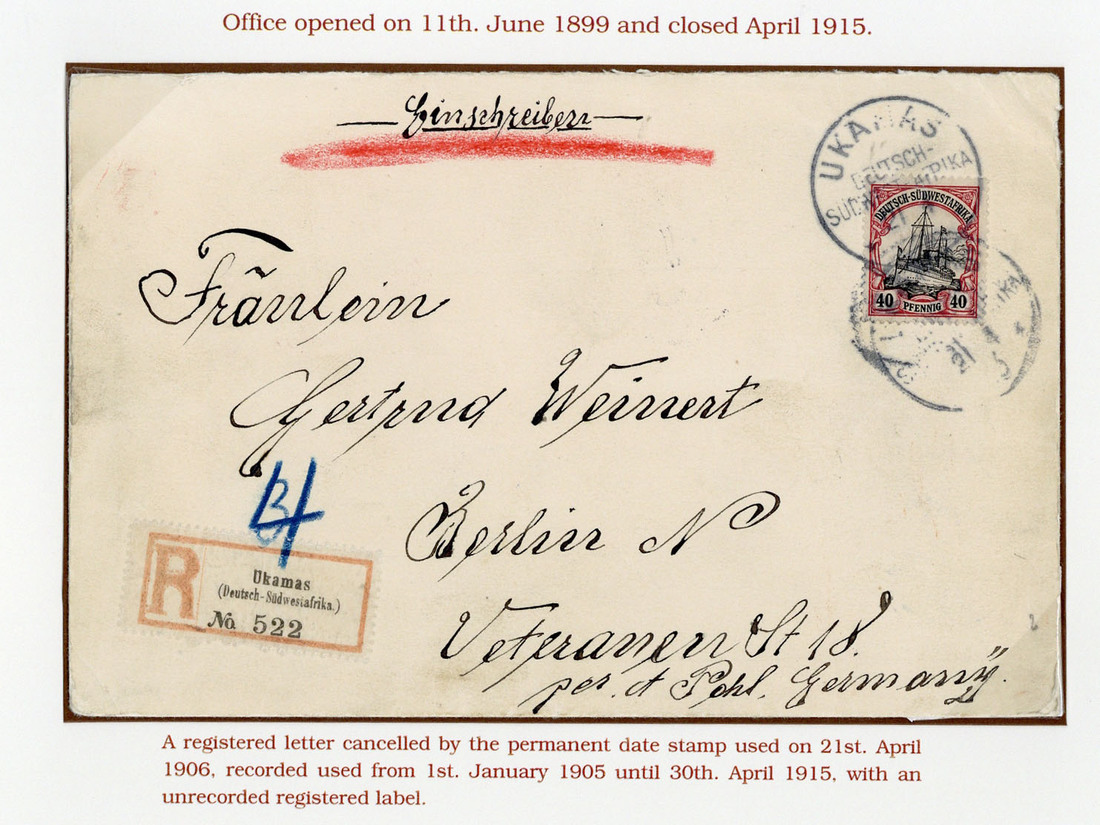 Office opened on 11th. June 1899 and closed April 1915.
Einschreiben
UKAMAS
DEUTSCH-
DEUTSCH-SÜDWESTAFRIKA
40 PFENNIG 40
21 4
Fräulein
Gertrud Weinert
Berlin N
Veteranen St 18.
per. d Pohl. Germany.
R
Ukamas
(Deutsch-Südwestafrika.)
No. 522
A registered letter cancelled by the permanent date stamp used on 21st. April
1906, recorded used from 1st. January 1905 until 30th. April 1915, with an
unrecorded registered label.